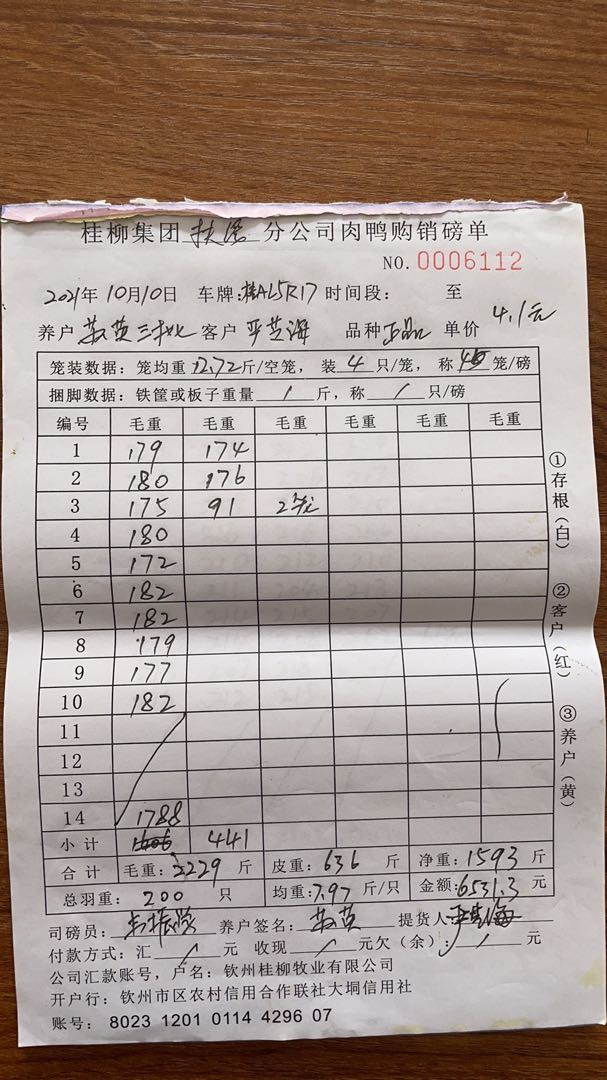 桂柳集团 扶绥 分公司肉鸭购销磅单
NO.0006112
2021年10月10日 车牌:桂AL5R17 时间段: 至
养户 苏英三批 客户 平芝海 品种 正品 单价 4.1元
笼装数据: 笼均重12.72斤/空笼, 装 4 只/笼, 称 笼/磅
捆脚数据: 铁筐或板子重量 / 斤, 称 / 只/磅
编号 毛重 毛重 毛重 毛重 毛重 毛重
1 179 174
2 180 176
3 175 91 2笼
4 180
5 172
6 182
7 182
8 179
9 177
10 182
11
12
13
14 1788
小计 441
合计 毛重:2229 斤 皮重:636 斤 净重:1593 斤
总羽重: 200 只 均重:7.97斤/只 金额:6531.3 元
司磅员: 养户签名: 苏英 提货人
付款方式: 汇 / 元 收现 / 元欠(余): / 元
公司汇款账号, 户名: 钦州桂柳牧业有限公司
开户行: 钦州市区农村信用合作联社大垌信用社
账号: 8023 1201 0114 4296 07
①存根(白) ②客户(红) ③养户(黄)